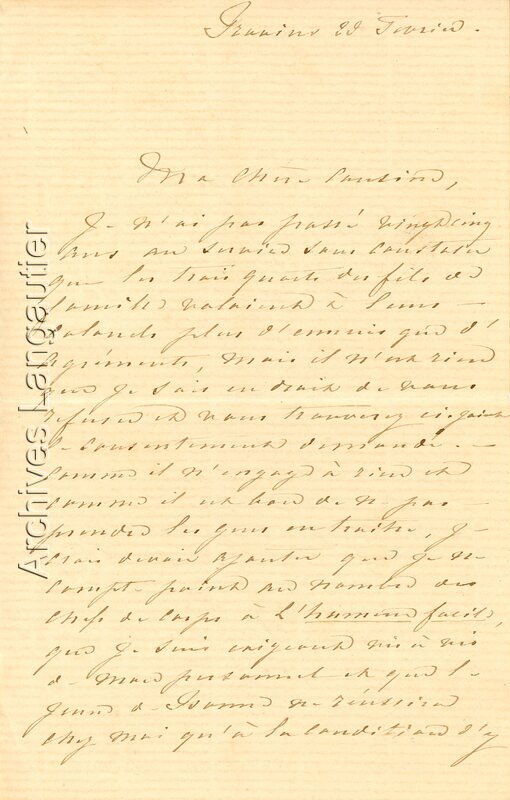 22 Février.
Ma chère cousine,
Je n'ai pas passé vingt cinq
ans au service sans constater
que les trois quarts des fils de
famille valaient à leurs
colonels plus d'ennuis que d'
agréments, mais il n'est rien
que je sois en droit de vous
refuser et vous trouverez ci-joint
le consentement demandé.
Comme il n'engage à rien et
comme il est bon de ne pas
prendre les gens en traître, je
crois devoir ajouter que je ne
compte point au nombre des
chefs de corps à l'humeur facile,
que je suis exigeant vis à vis
de mon personnel et que le
jeune de ne réussira
chez moi qu'à la condition d'y
Archives Langautier